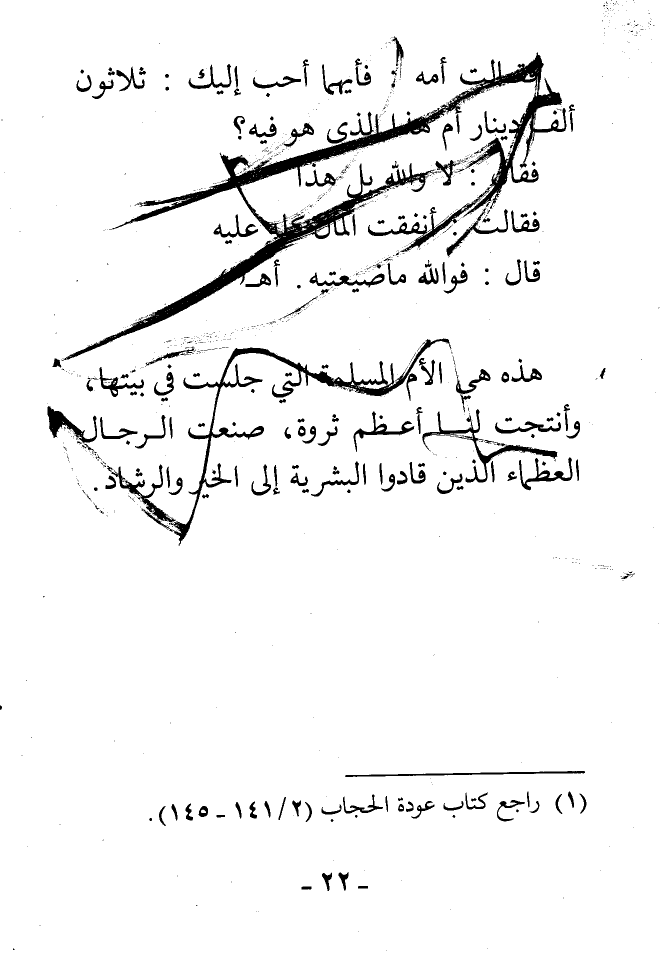 فقالت أمه : فأيهما أحب إليك : ثلاثون
ألف دينار أم هذا الذى هو فيه؟
فقال : لا والله بل هذا
فقالت : أنفقت المال كله عليه
قال : فوالله ماضيعتيه. أهـ(١)
هذه هي الأم المسلمة التي جلست في بيتها،
وأنتجت لنا أعظم ثروة، صنعت الرجال
العظماء الذين قادوا البشرية إلى الخير والرشاد.
(١) راجع كتاب عودة الحجاب (٢/١٤١ - ١٤٥).
- ٢٢ -